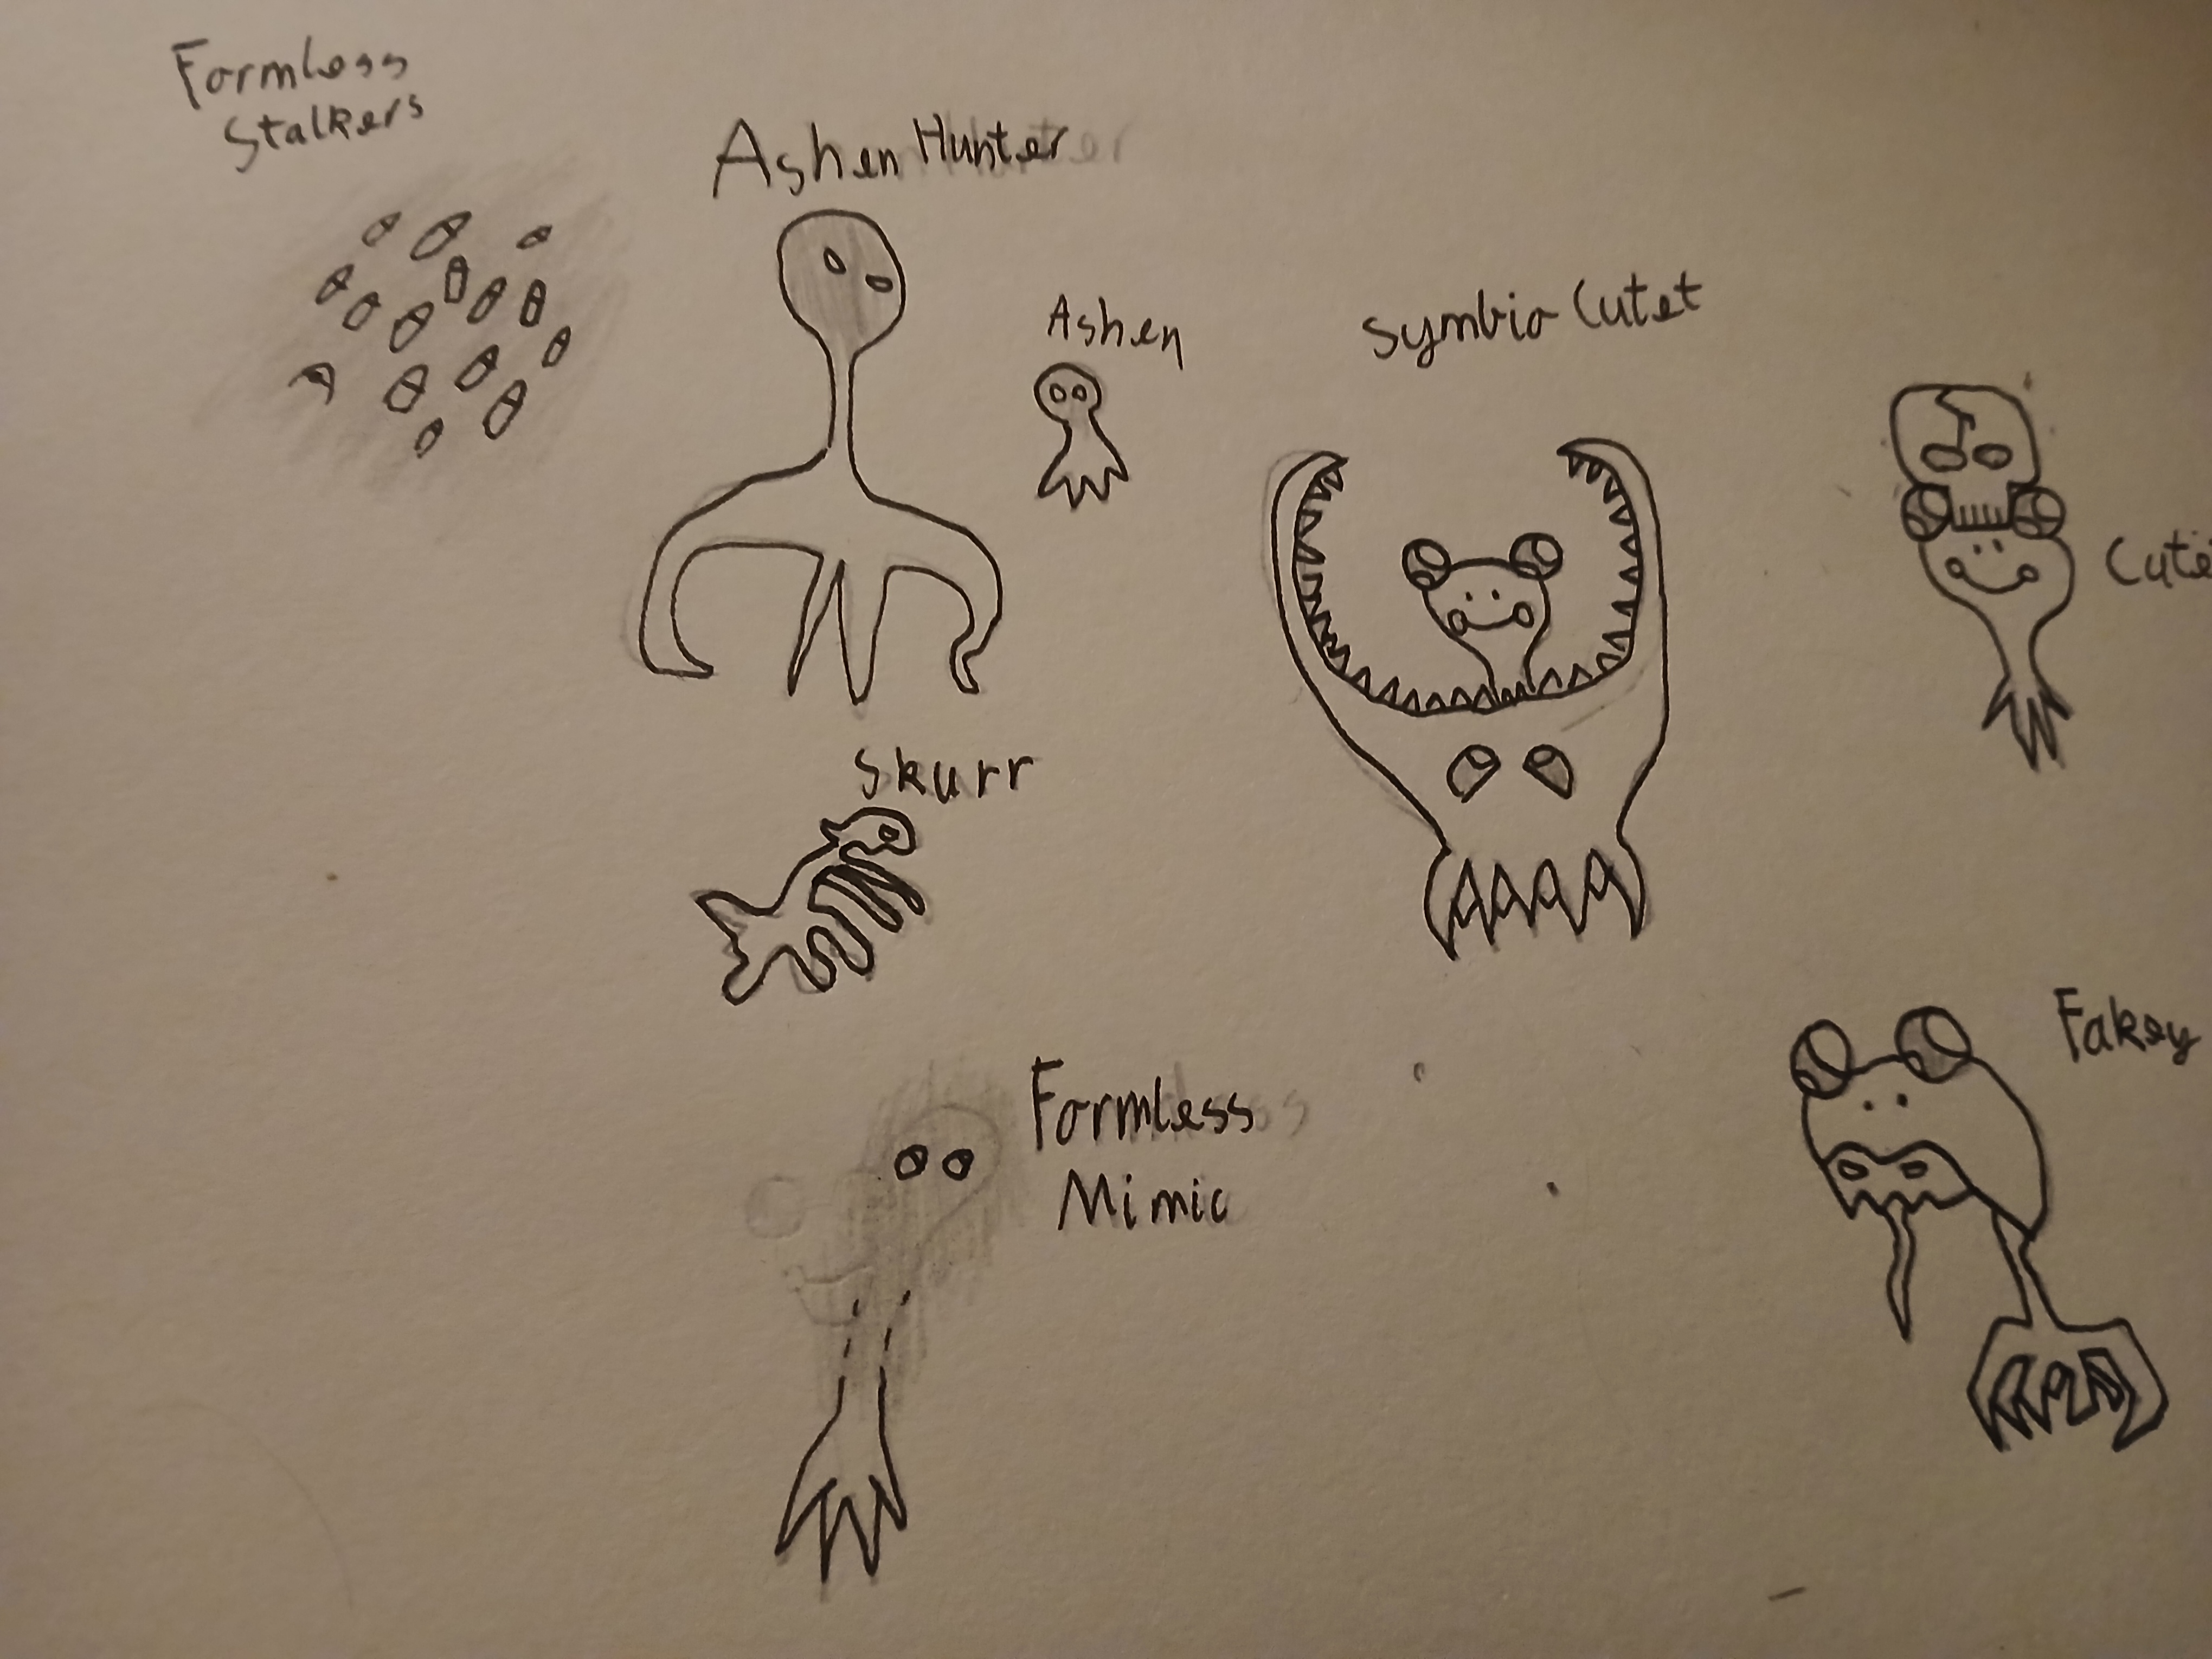 Formless
Stalkers
Ashen Hunter
Ashen
Symbio Cutet
Skurr
Fakey
Formless
Mimic